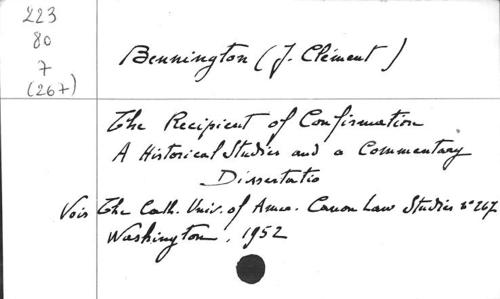 223
80
7
(267)
Bennington (J. Clément)
The Recipient of Confirmation
A Historical Studies and a Commentary
Dissertatio
Vois The Cath. Univ. of Amer. Canon Law Studies n° 267
Washington, 1952